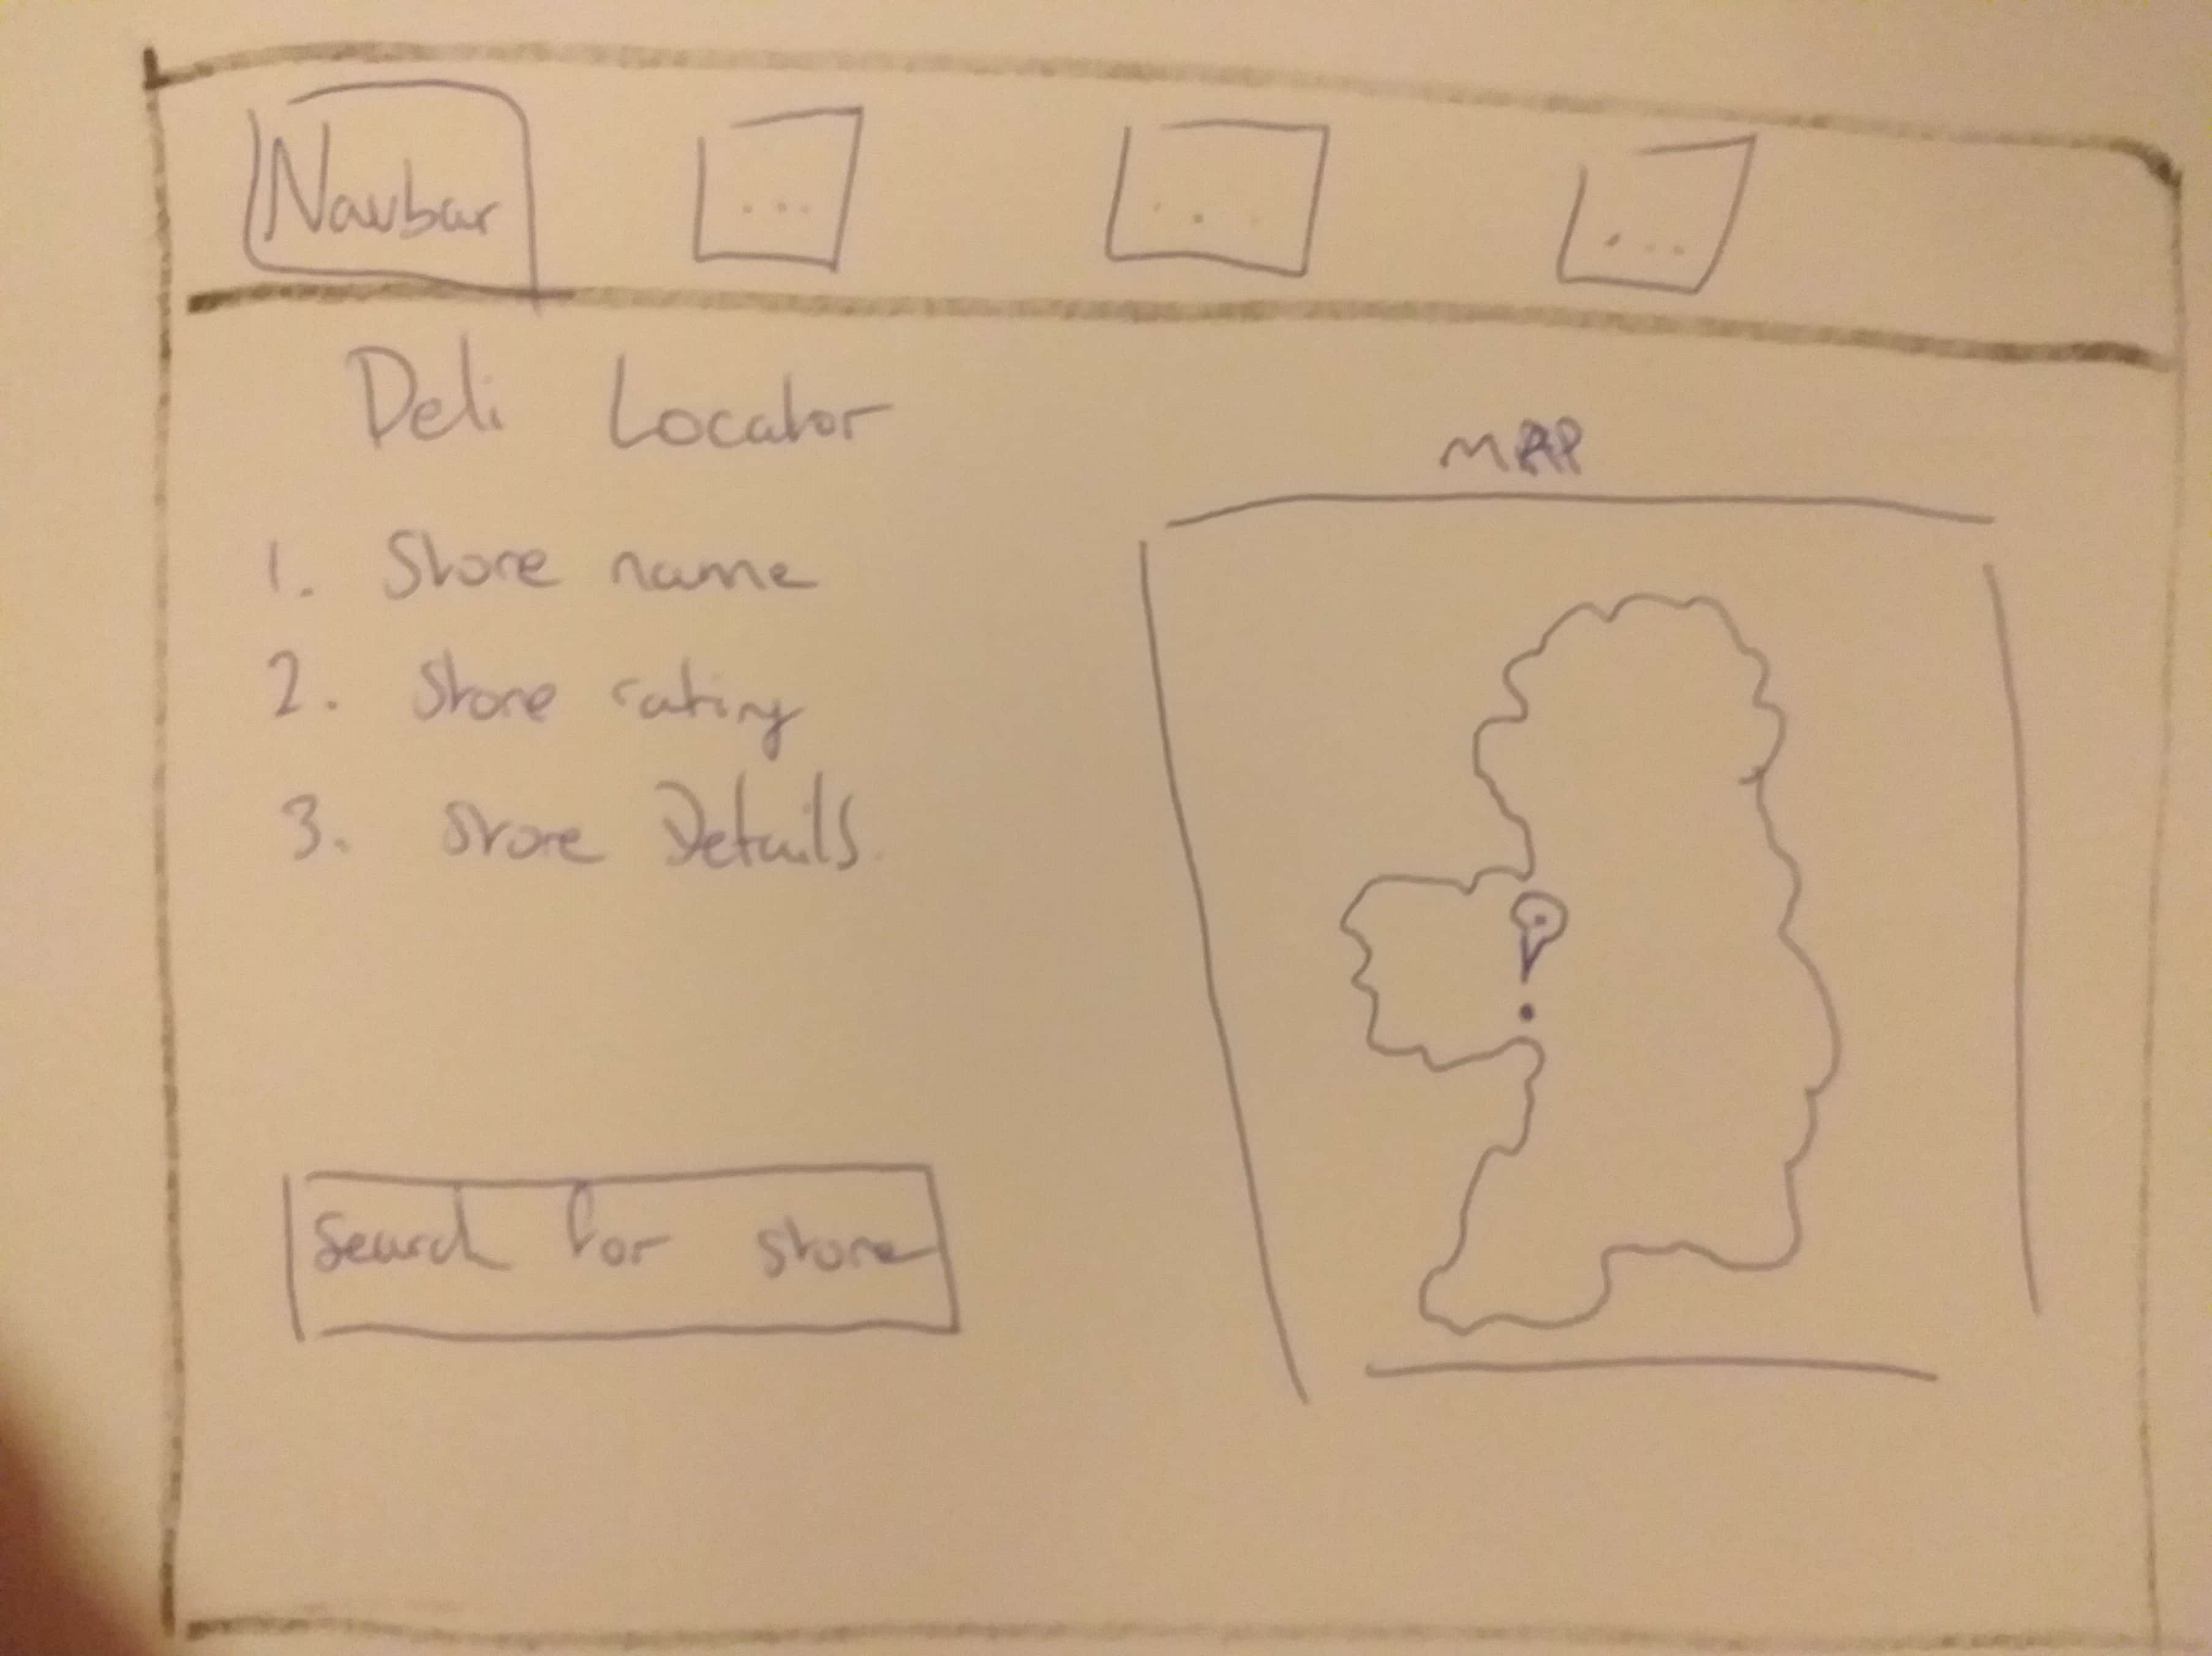 Navbar ... ... ...
Deli Locator
MAP
1. Store name
2. Store rating
3. Store Details
Search for store